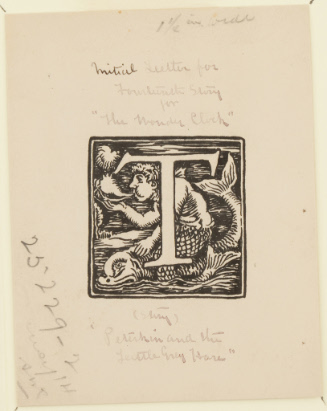 1 1/2 in. wide
Initial Letter for
Fourteenth Story
for
"The Wonder Clock"
T
(Story)
"Peterkin and the
Little Grey Hare"
25-229-2